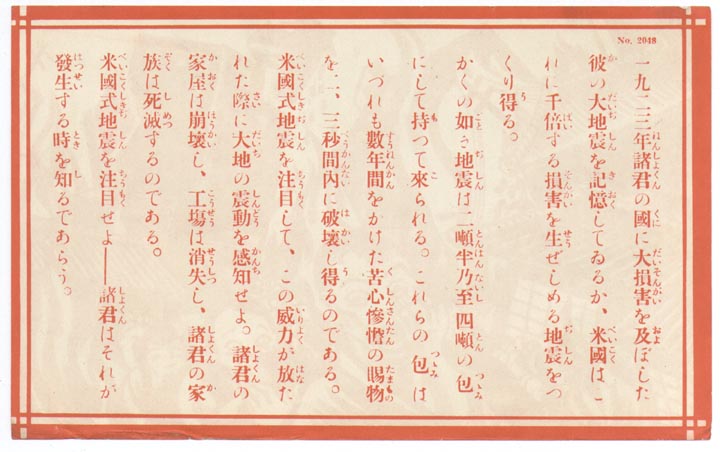 No. 2048
一九二三年諸君の國に大損害を及ぼした
彼の大地震を記憶してゐるか、米國はこ
れに千倍する損害を生ぜしめる地震をつ
くり得る。
かくの如き地震は二噸半乃至四噸の包
にして持つて來られる。これらの包は
いづれも數年間をかけた苦心慘憺の賜物
を二、三秒間內に破壞し得るのである。
米國式地震を注目して、この威力が放た
れた際に大地の震動を感知せよ。諸君の
家屋は崩壞し、工場は消失し、諸君の家
族は死滅するのである。
米國式地震を注目せよ——諸君はそれが
發生する時を知るであらう。